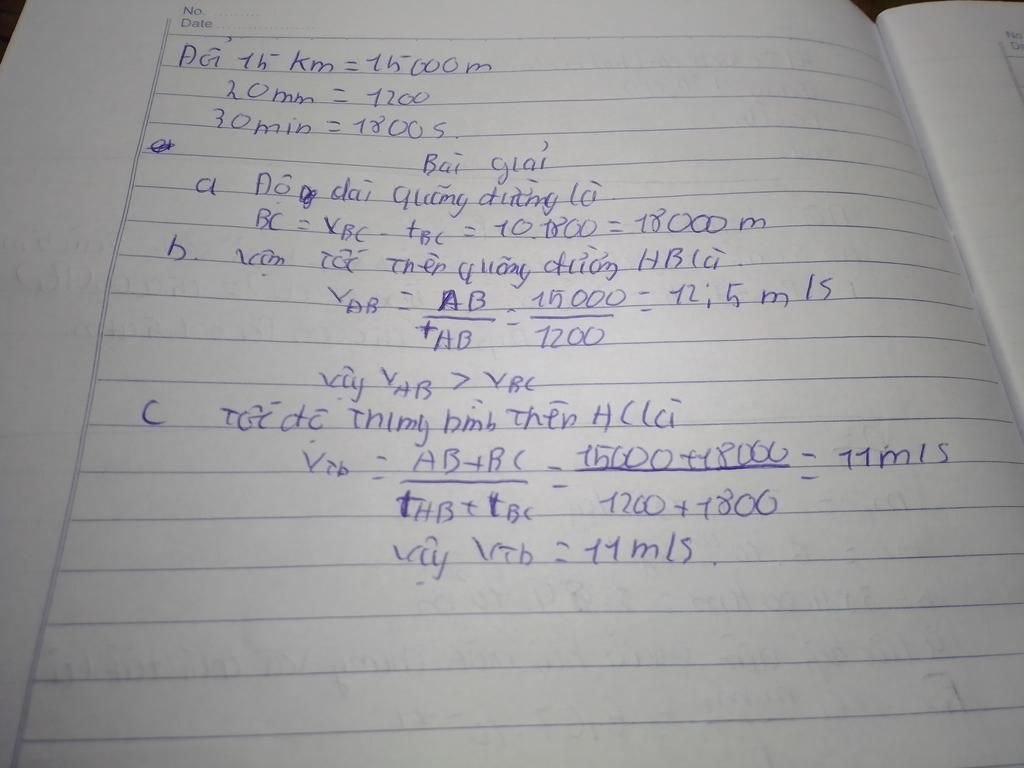 No.
Date
Đổi 15 km = 15000m
20min = 1200
30min = 1800s.
Bài giải
a Độ dài quãng đường là
BC = VBC . tBC = 10.1800 = 18000 m
b. Vận tốc trên quãng đường AB là
VAB = AB/tAB = 15000/1200 = 12,5 m/s
Vậy VAB > VBC
C Tốc độ trung bình trên AC là
VTb = AB+BC/tAB + tBC = 15000+18000/1200+1800 = 11m/s
Vậy VTb = 11m/s.